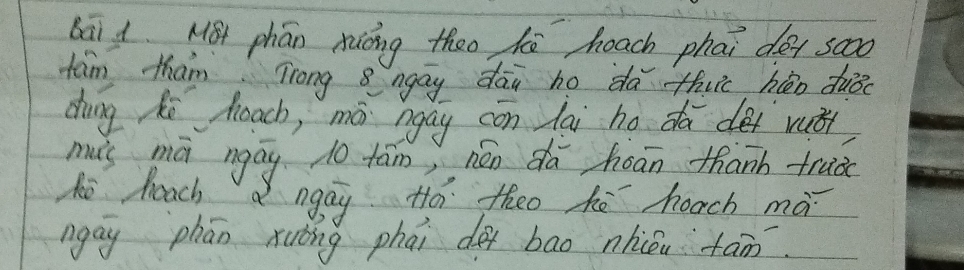 Bài 1. Một phân xưởng theo kế hoạch phải dệt 3000
tấm thảm. Trong 8 ngày đầu họ đã thực hiện được
đúng kế hoạch, mỗ ngày còn lại họ đã dệt vượt
mức mỗi ngày 10 tấm, nên đã hoàn thành trước
kế hoạch 2 ngày. Hỏi theo kế hoạch mỗ
ngày phân xưởng phải dệt bao nhiêu tấm.